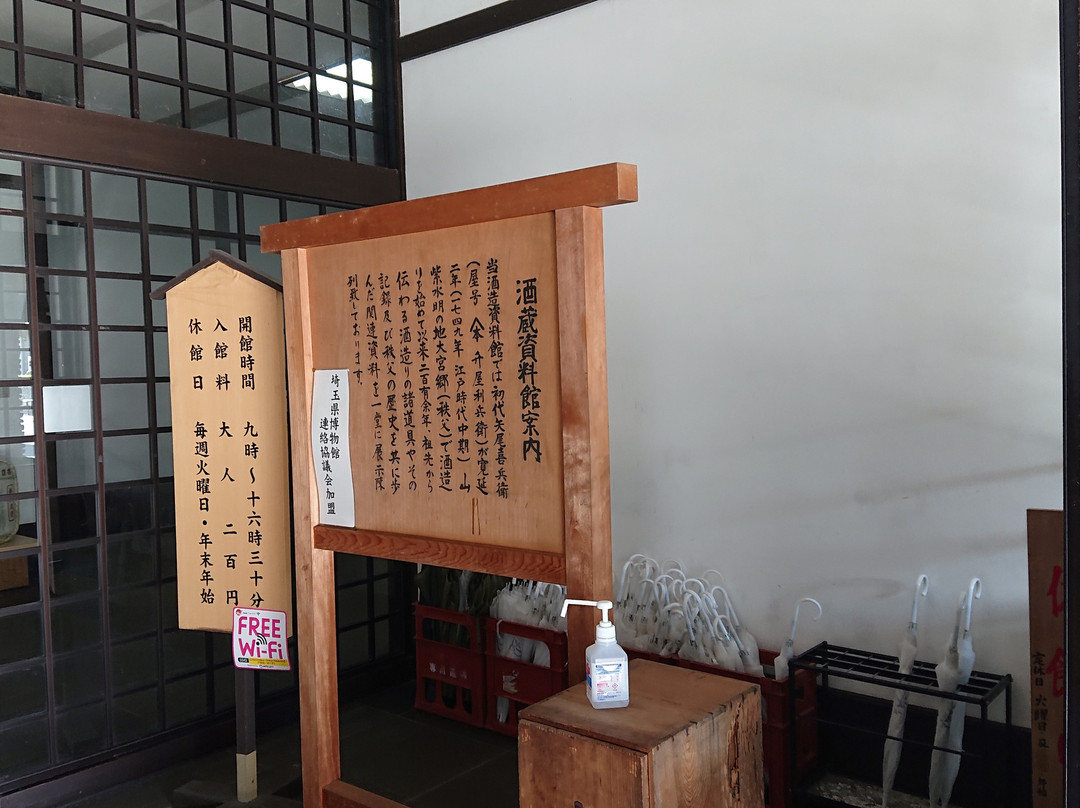 酒蔵資料館案内
当酒造資料館では初代矢尾喜兵衛
(屋号 升屋利兵衛)が寛延
二年(一七四九年 江戸時代中期)山
紫水明の地大宮郷(秩父)で酒造
りを始めて以来二百有余年、祖先から
伝わる酒造りの諸道具やその
記録及び秩父の歴史を共に歩
んだ関連資料を一堂に展示陳
列致しております。
埼玉県博物館
連絡協議会加盟
開館時間 九時～十六時三十分
入館料 大人 二百円
休館日 毎週火曜日・年末年始
FREE
Wi-Fi